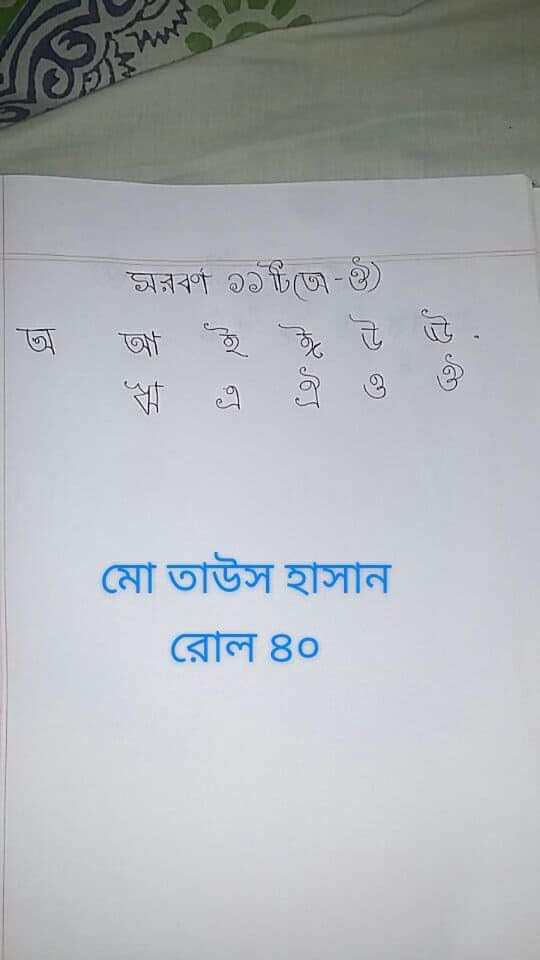 সরবর্ণ ১১টি(অ-ঔ)
অ আ ই ঈ উ ঊ .
ঋ এ ঐ ও ঔ
মো তাউস হাসান
রোল ৪০